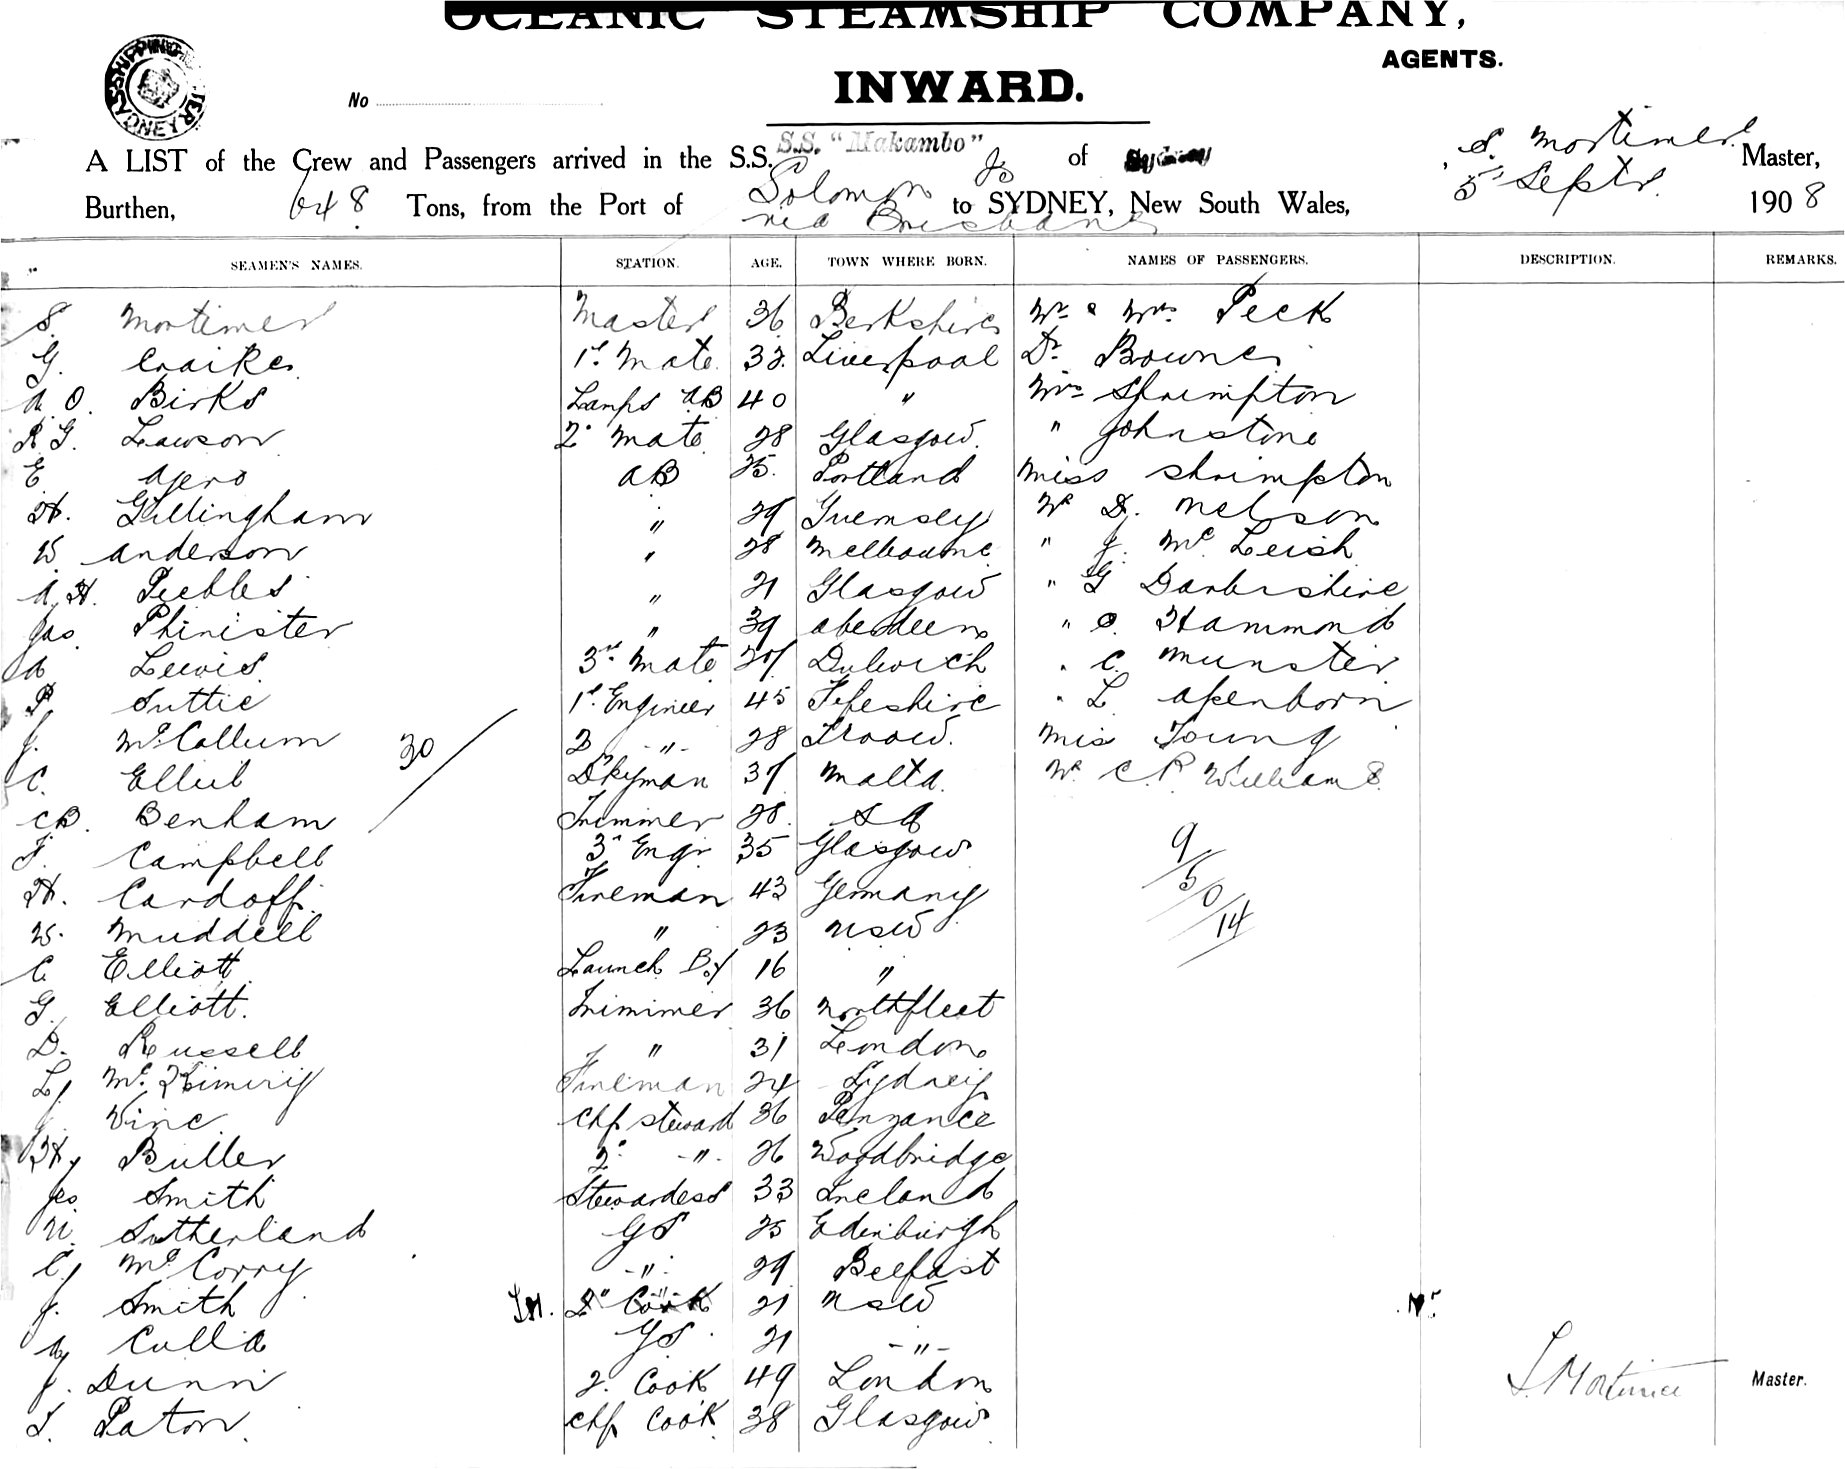 OCEANIC STEAMSHIP COMPANY,
AGENTS.
INWARD.
SHIPPING SYDNEY
No
S.S. "Makambo"
A LIST of the Crew and Passengers arrived in the S.S. of Sydney S. Mortimer Master,
Burthen, 648 Tons, from the Port of Solomon Is to SYDNEY, New South Wales, 5 Septr. 1908
via Brisbane
SEAMEN'S NAMES. STATION. AGE. TOWN WHERE BORN. NAMES OF PASSENGERS. DESCRIPTION. REMARKS.
S. Mortimer Master 36 Berkshire Mr & Mrs Peck
G. 1st Mate 32 Liverpool Dr.
A. O. Birks Lamps AB 40 " Mrs Shrimpton
R G. Lawson 2 Mate 28 Glasgow. " Johnstone
E AB 25. Portland Miss Shrimpton
H. Gillingham " 29 Guernsey Mr D. Nelson
W. Anderson " 28 Melbourne " J. McLeish
A. H. Peebles " 21 Glasgow " G Darbishire
Jas. Phinister " 39 Aberdeen " O. Hammond
A Lewis. 3rd Mate Dulwich " C. Munster
P. Suttie 1st Engineer 45 Fifeshire " L
J. McCallum 2 -"- 28 Troon. Miss Young
30
C. Ellul Dkyman 37 Malta. Mr C. P. Williams
CB. Benham Trimmer 28. SA
F. Campbell 3rd Engr 35 Glasgow
H. Cardoff. Fireman 43 Germany
W. Muddell " 23 NSW
C. Elliott. Launch Boy 16 "
G. Elliott. Trimmer 36 Northfleet
D. Russell " 31 London
L. Fireman 24 Sydney
J. Vine Chf Steward 36 Penzance
Hy Butler 2 -"- 26 Woodbridge
Jes. Smith Stewardess 33 Ireland
N. Sutherland GS 25 Edinburgh
C. McCorry -"- 29 Belfast
J. Smith 2 Cook 21 NSW
A. Culla GS 21 -"-
J. Dunn 2. Cook 49 London
T. Paton. Chf Cook 38 Glasgow
9/5/0/14
S. Mortimer Master.